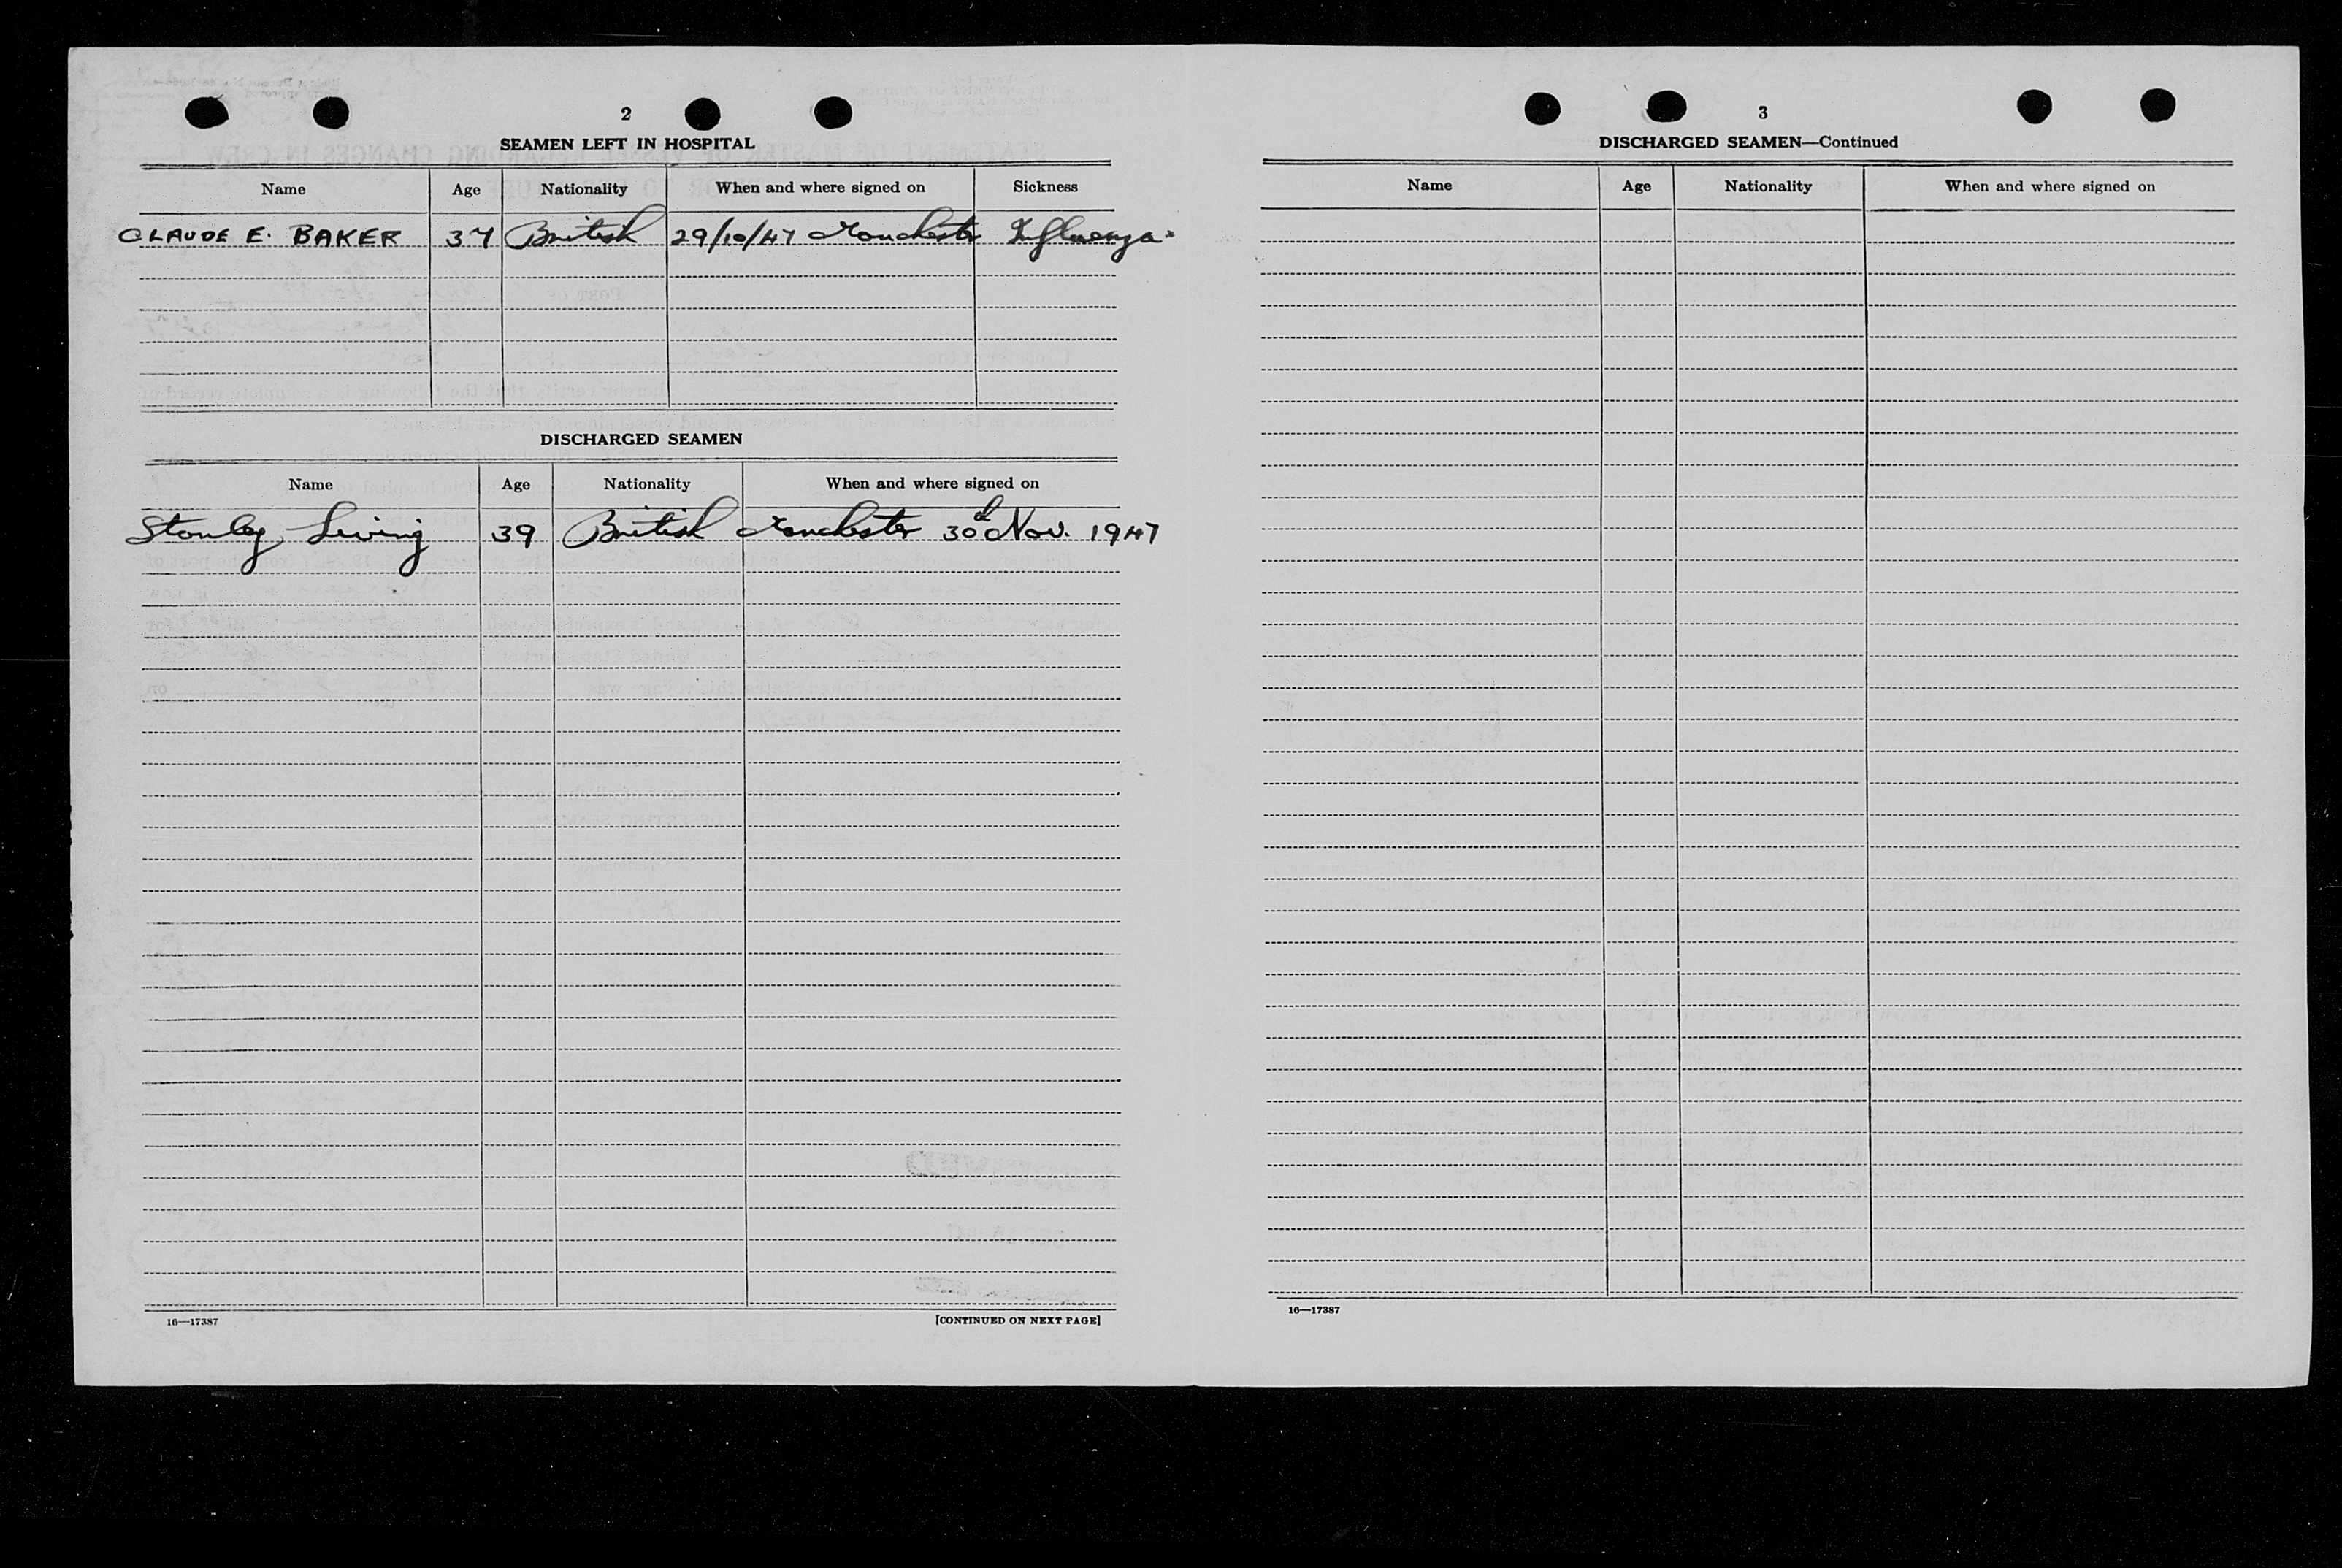 2
SEAMEN LEFT IN HOSPITAL
Name Age Nationality When and where signed on Sickness
CLAUDE E. BAKER 37 British 29/10/47 Manchester Influenza.
DISCHARGED SEAMEN
Name Age Nationality When and where signed on
Stanley Living 39 British Manchester 30th Nov. 1947
16—17387 [CONTINUED ON NEXT PAGE]
3
DISCHARGED SEAMEN—Continued
Name Age Nationality When and where signed on
16—17387